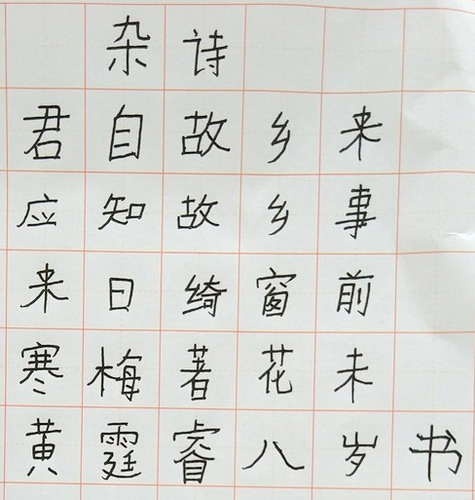 杂诗
君自故乡来
应知故乡事
来日绮窗前
寒梅著花未
黄霆睿八岁书